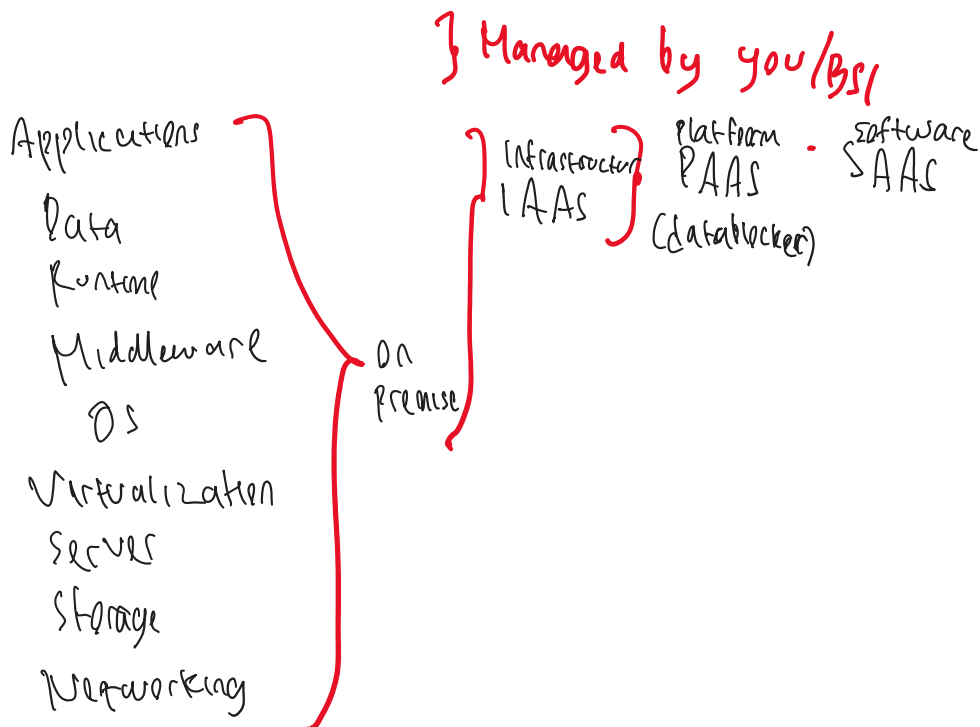 } Managed by you/BSI
Applications
Data
Runtime
Middleware
OS
Virtualization
Server
Storage
Networking
On
Premise
Infrastructur
IAAS
Platform
PAAS
(datablocker)
Software
SAAS